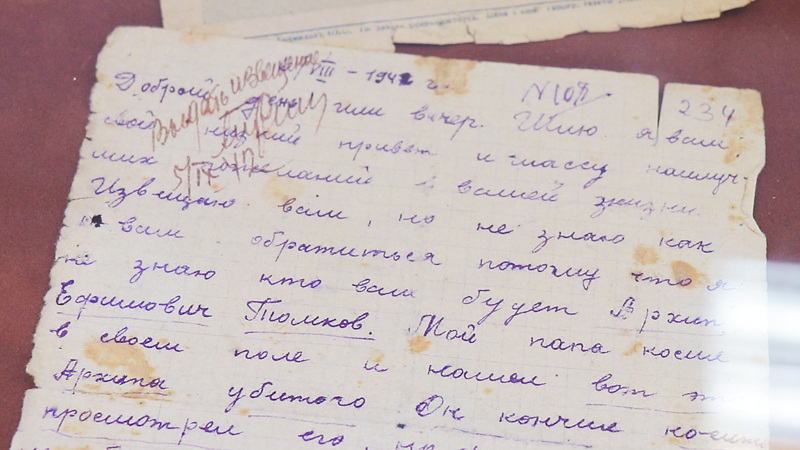 VIII - 1942 г.
N 108
234
Выслать извещение
5/IX
Добрый день или вечер. Шлю я вам
свой низкий привет и массу наилуч-
ших пожеланий в вашей жизни.
Извещаю вам, но не знаю как
к вам обратиться потому что я
не знаю кто вам будет Архип
Ефимович Толмков. Мой папа косил
в своем поле и нашел вот эт
Архипа убитого. Он кончил косить
просмотрел его,